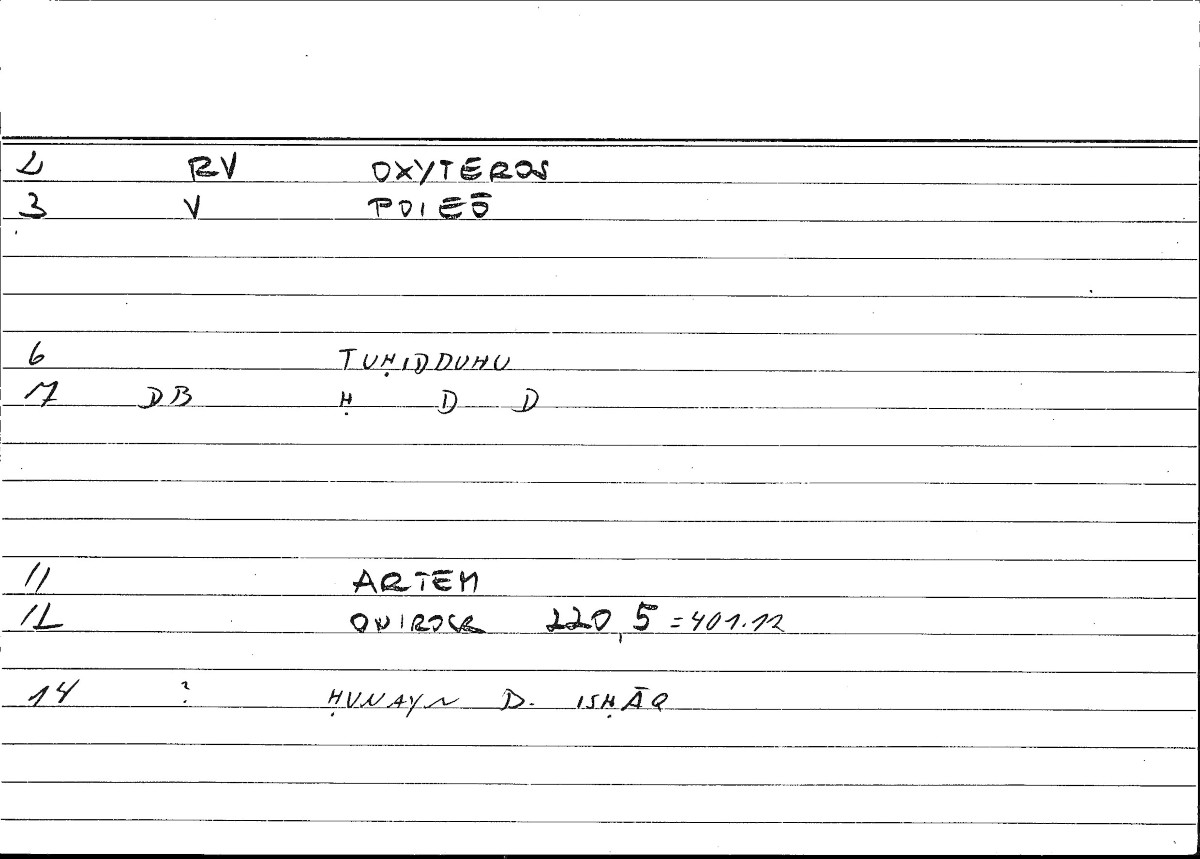 2 RV OXYTEROS
3 V POIEŌ
6 TUḤIDDUHU
7 DB Ḥ D D
11 ARTEM
12 ONIROCR 220,5 = 401.12
14 ? ḤUNAYN B. ISḤĀQ